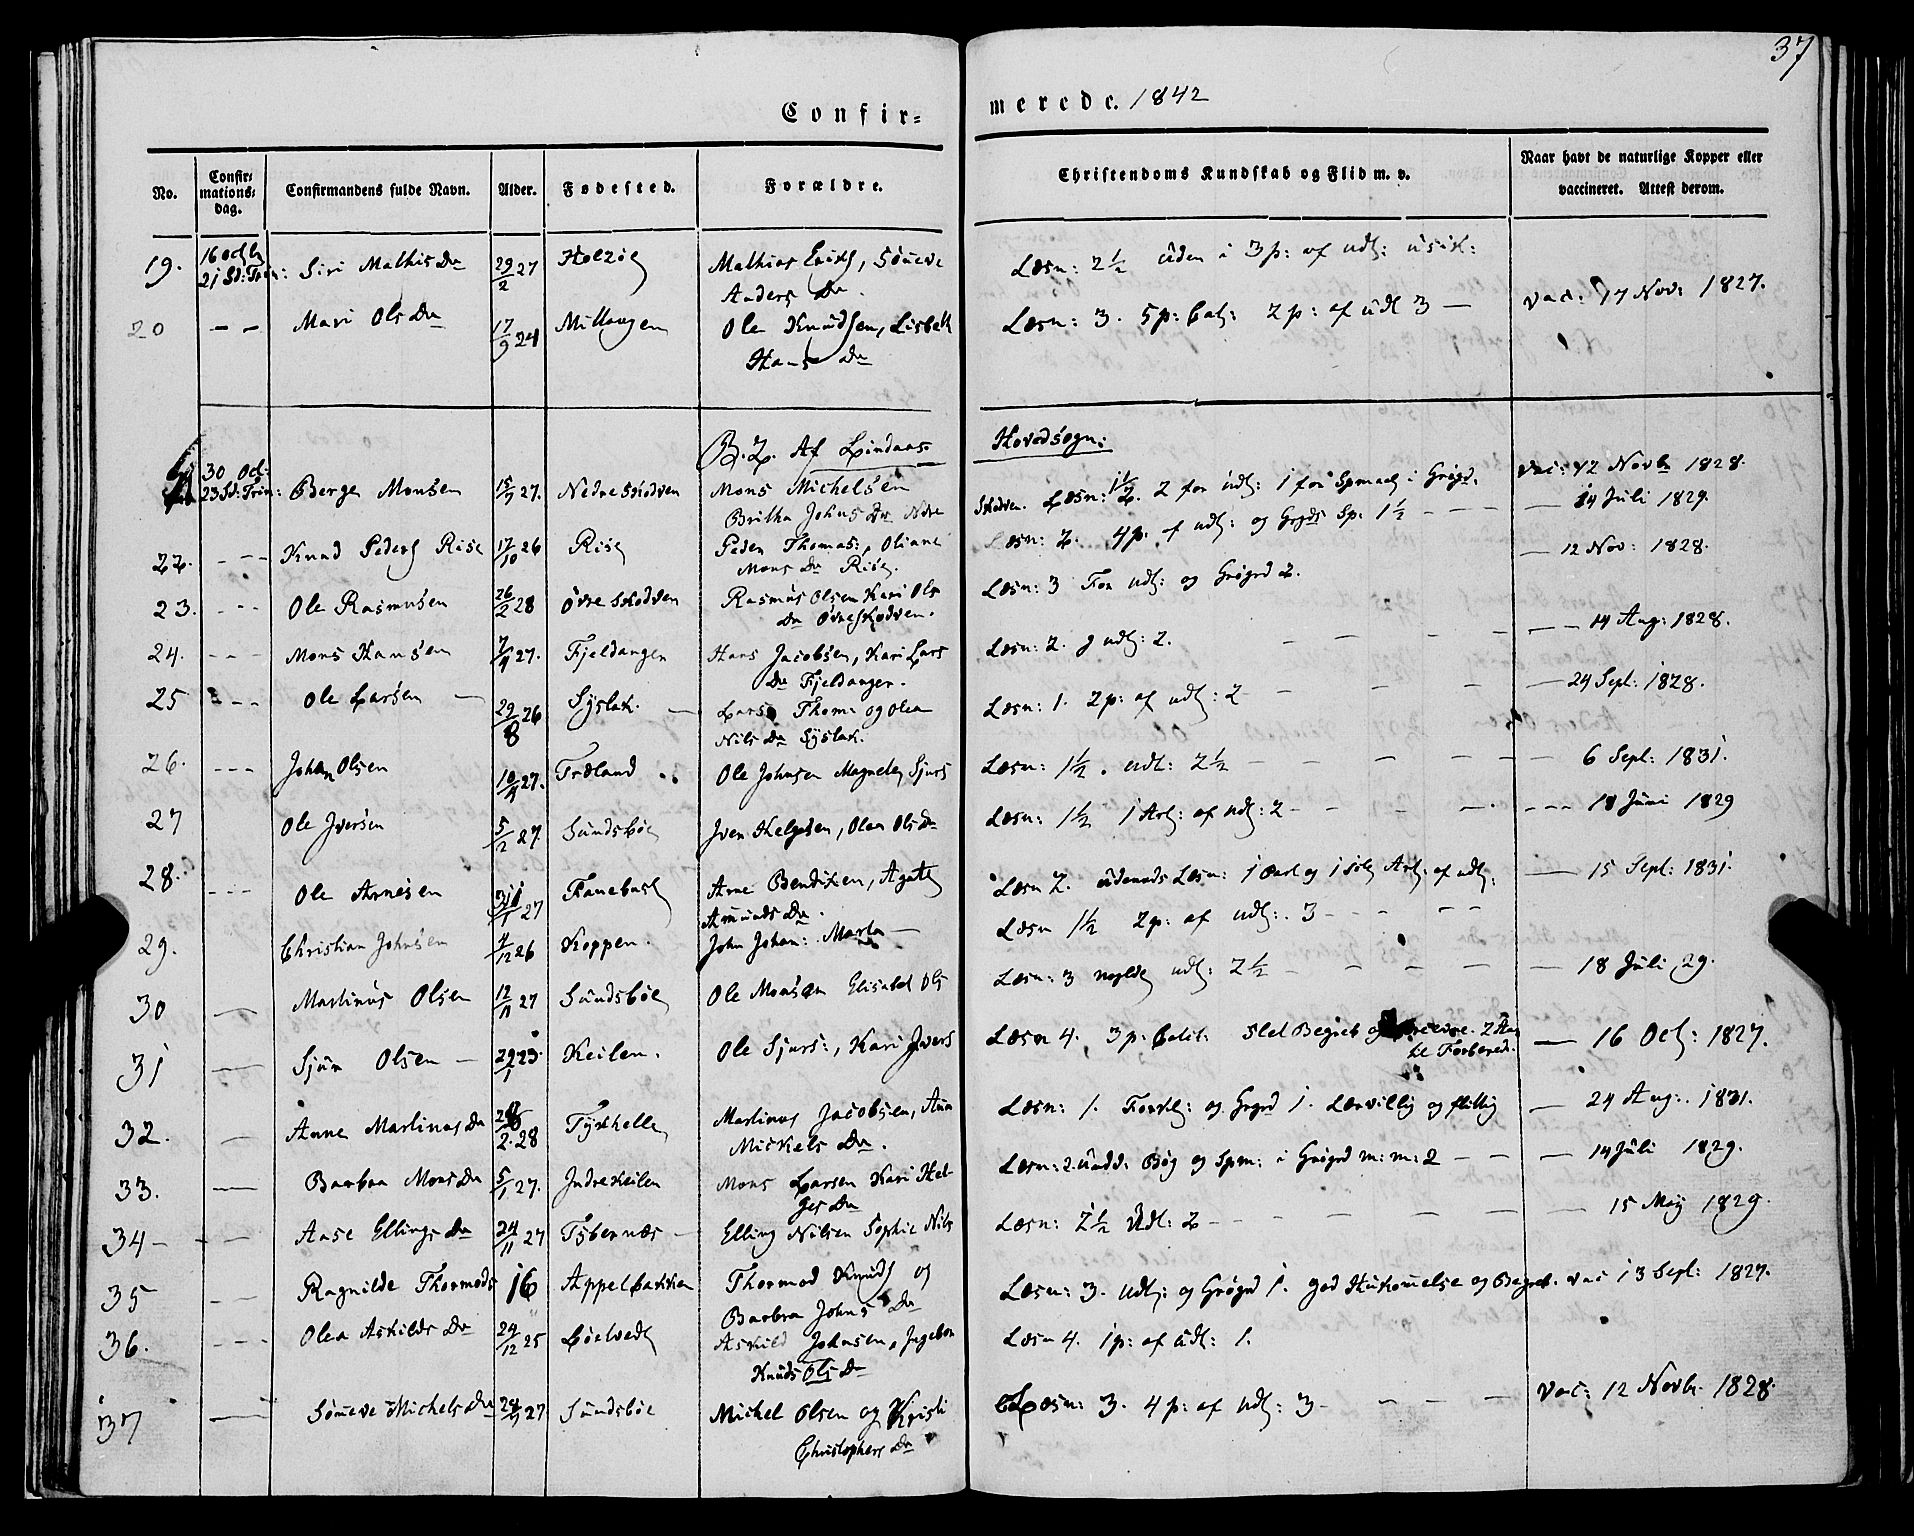 37
Confir-
merede. 1842
No.
Confir-
mations-
dag.
Confirmandens fulde Navn.
Alder.
Fødested.
Forældre.
Christendoms Kundskab og Flid m. v.
Naar havt de naturlige Kopper eller
vaccineret. Attest derom.
19. 16 octb 21 Sd: Trin: Siri MathisDr 29/2 27 Mathias Erichs, Söneve
Anders Dr.
Læsn: 2½ uden i 3 p: af udl:
20 - - Mari OlsDr 17/9 24 Millangen Ole Knudsen, Lisbeth
Hans Dr
Læsn: 3. 5 p: Cat: 2 p: af udl 3 — vac: 17 Nov: 1827.
B. 2. Af Lindaas
Hovedsogn:
30 Oct: 23 Sd: Trin: Berge Monsen 15/7 27. Nedre Skodven Mons Michelsen
Britha Johns Dr Ndre
Skodven. Læsn: 1½ 2 for udl: 1 for Spmaal i Grøgd. vac: 12 Novbr 1828.
22. - - - Knud Peders Rise 17/10 26 Rise Peder Thomas:, Oliane
Mons Dr Rise.
Læsn: 2. 4 p. af udl: og Sp: 1½ - - - — 14 Juli 1829.
23. - - - Ole Rasmusen 26/2 28 Øvre Skodven Rasmus Olsen Kari Ols
Dr Øvre Skodven.
Læsn: 3 For udl: og Grøgd 2. — 12 Nov: 1828.
24. - - - Mons Hansen 7/4 27. Fjeldanger Hans Jacobsen, Kari Lars
Dr Fjeldanger.
Læsn: 2. udl: 2. — 14 Aug: 1828.
25 - - - Ole Larsen — 29/8 26 Syslak. — Lars Thom: og Olea
Nils Dr Syslak.
Læsn: 1. 2 p: af udl: 2 — 24 Sept: 1828.
26. - - - Johan Olsen 10/4 27. Træland Ole Johnsen Magnele Sjurs
Læsn: 1½. udl: 2½ — 6 Sept: 1831.
27 Ole Jversen 5/2 27. Sundsböe Jver Helgesen, Olea OlsDr
Læsn: 1½ 1 Art: af udl: 2 - - - - 18 Juni 1829
28. - - - Ole Arnesen 27 Fanebust Arne Bendixen, Agate
Amunds Dr.
Læsn 2. Læsn: 1 Parl og 1 Art: af udl: — 15 Sept: 1831.
29. Christian Johnsen 4/12 26 Koppen. John Johan: Marta —
Læsn 1½ 2 p: af udl: 3 - - -
30 — Martinus Olsen 12/11 27 Sundsböe Ole Monsen Elisabet Ols
Læsn: 3 udl: 2½ — 18 Juli 29.
31 — Sjur Olsen — 29/1 23. Keilen. Ole Sjurs:, Kari Jvers
Læsn 4. 3 p: Slet Begreb og 2 Aar
til Forbered. — 16 Oct: 1827.
32. — Anne Martinus Dr 2. 28 Tyskelle Martinus Jacobsen, Ana
Mickels Dr.
Læsn: 1. Forkl: og Grgd 1. Lærvillig og flittig — 24 Aug: 1831.
33. — Barbra MonsDr 5/1 27. Jndre Keilen Mons Larsen Kari Hel-
ges Dr
Læsn: 2. Bog og Spm: i Grøgd m: m: 2 - - — 14 Juli 1829.
34 — Aase Ellings Dr 24/11 27 Tybernæs — Elling Nilsen Sophie Nils
Læsn: 2½ Udl: 2 - — 15 May 1829.
35 — Ragnilde Thormods 16 Appelbakken Thormod Knuds og
Barbra Johns Dr
Læsn: 3. udl: og Grøgd 1. god Hukomelse og Begreb. vac 13 Sept: 1827.
36. - - - Olea Askilds Dr 24/12 25 Askild Johnsen, Jngebor
Knuds Ols Dr
Læsn 4. 1 p: af udl: 1.
37 — Söneve Michels Dr 27 Sundsböe Michel Olsen og Kristi
Christophers Dr
Læsn: 3. 4 p: af udl: 3 - — vac: 12 Novbr. 1828.